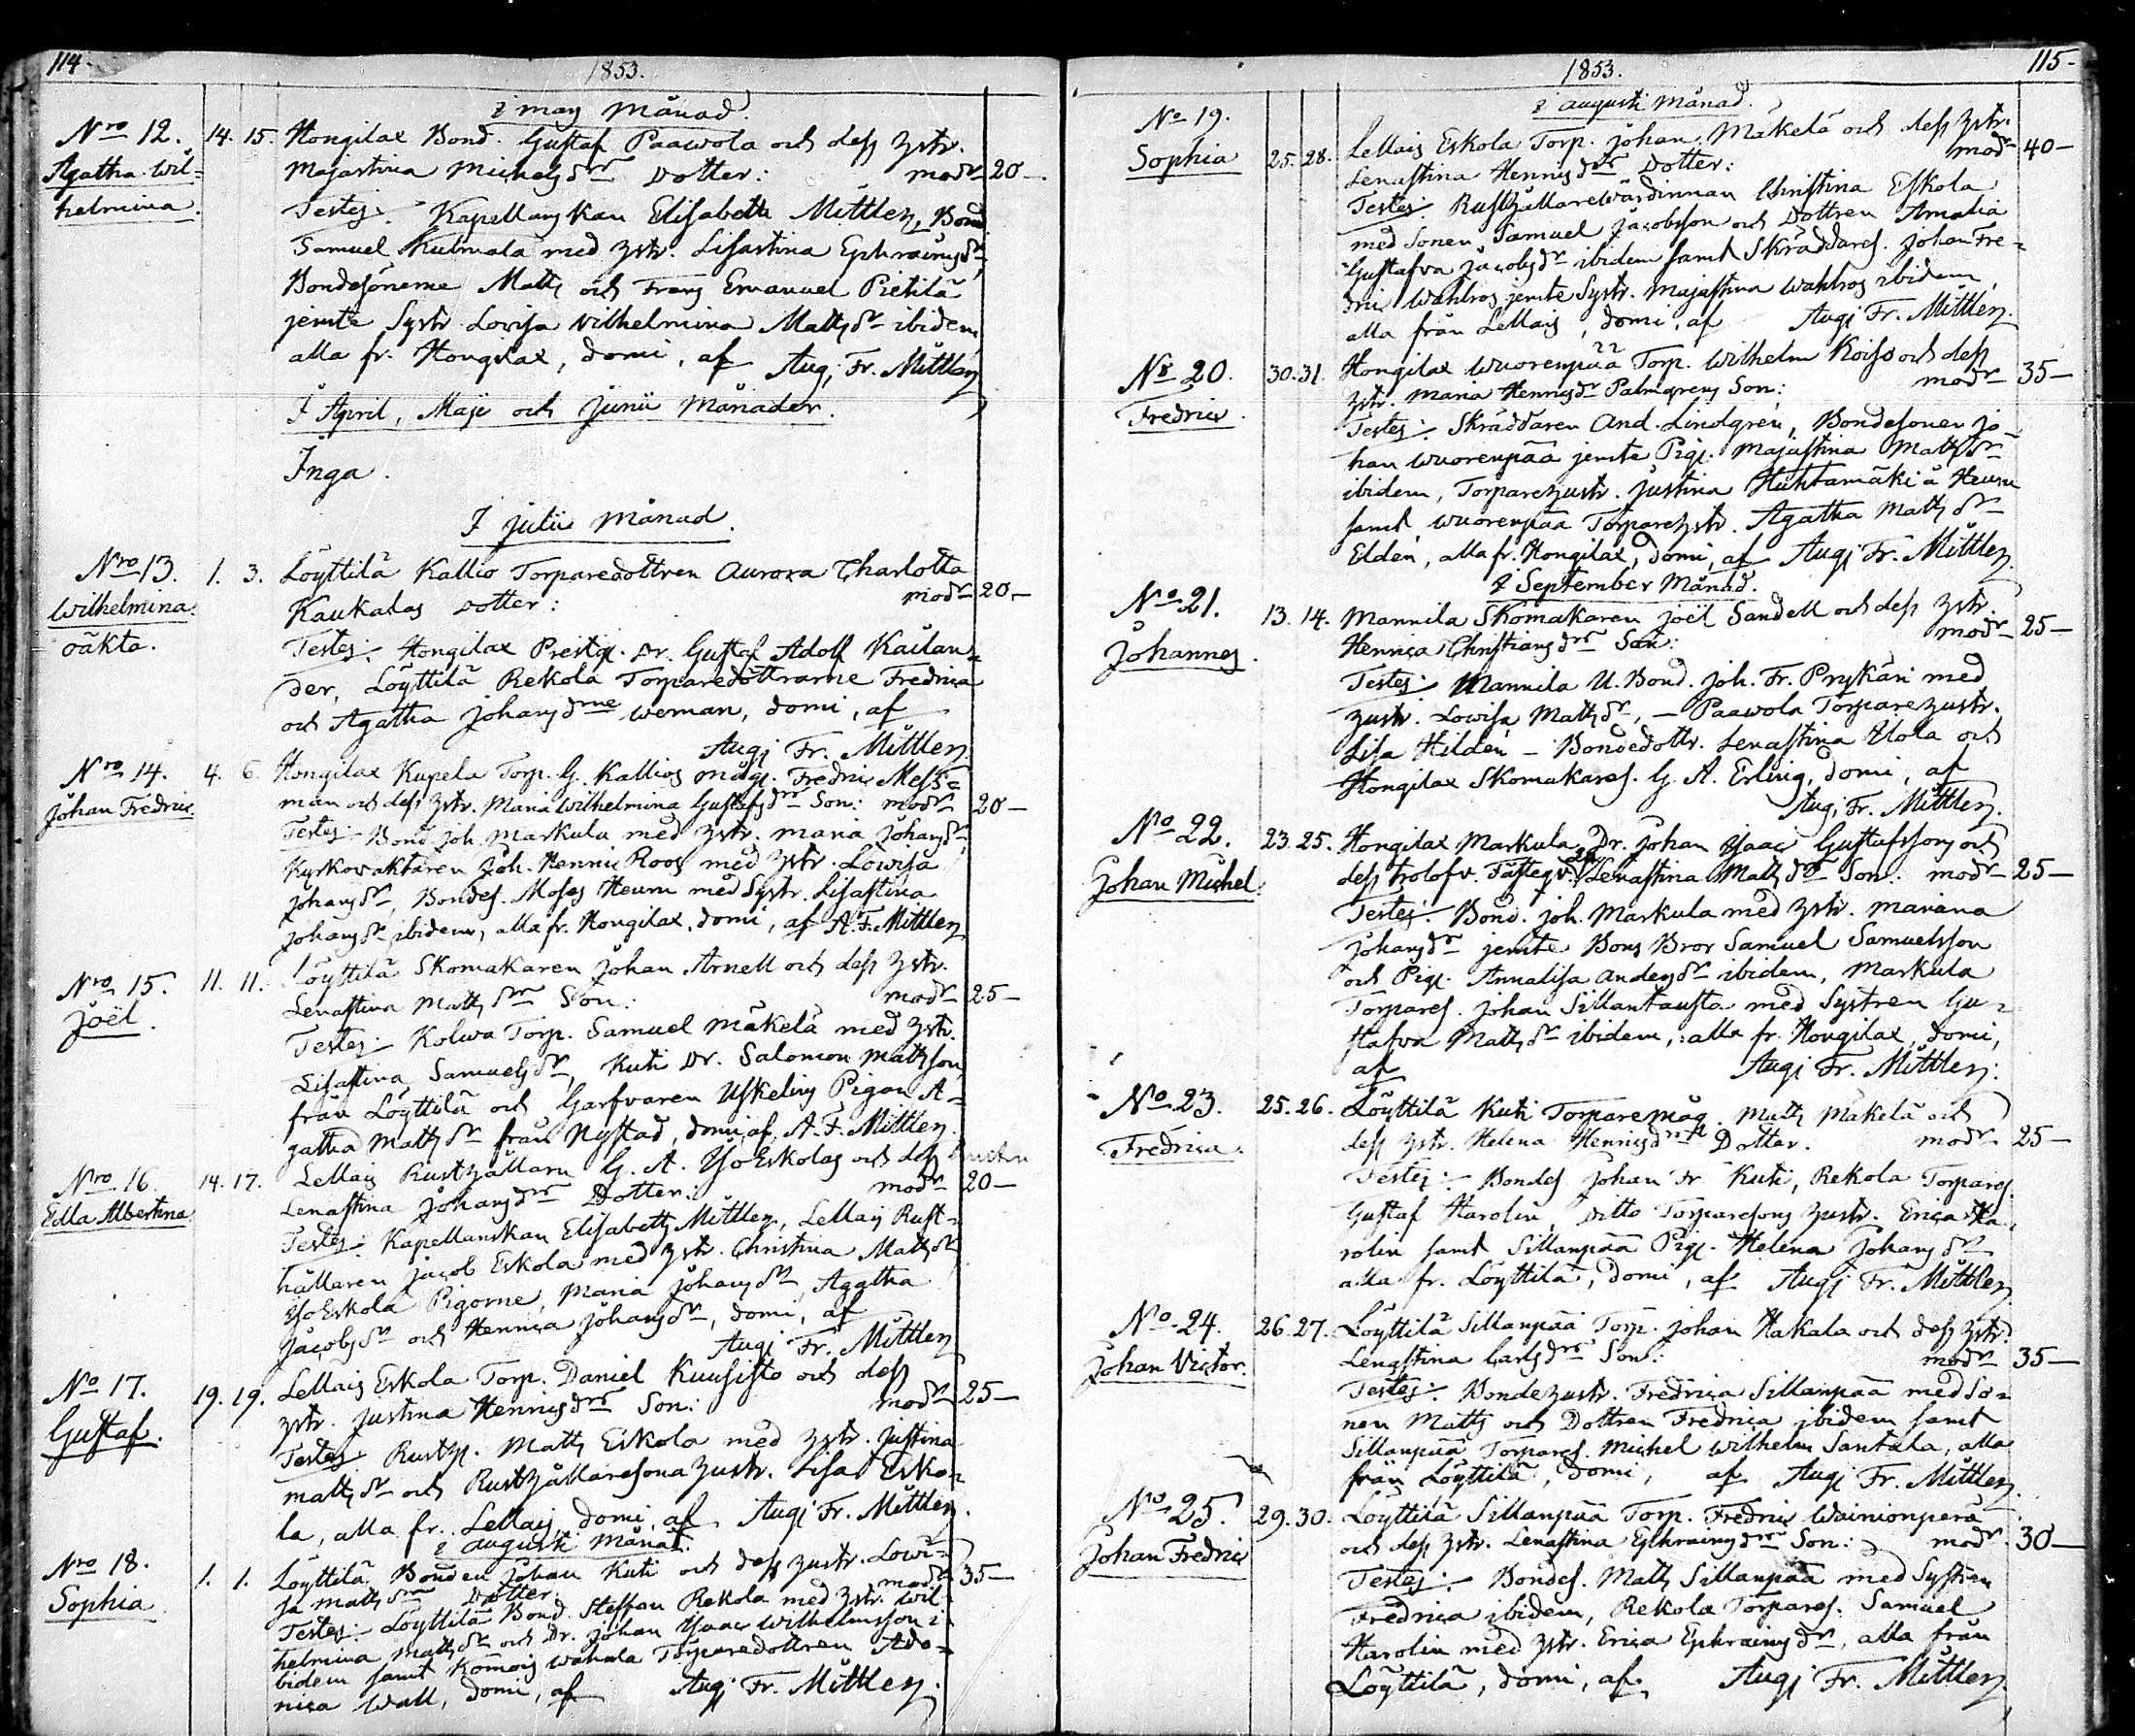 114.
1853.
i may Månad.
Nro 12. 14. 15. Hongilax Bond. Gustaf Paawola och dess Hstr.
Agatha Wil= Majastina Michelsdr Dotter: modr 20-
helmina. Testes: Kapellanskan Elisabeth Mittler, Bond
Samuel Kulmala med Hstr. Lisastina Ephraimsdr,
Bondesönerne Matts och Frans Emanuel Pietilä
jemte Systr Lovisa Wilhelmina Mattsdr ibidem,
alla fr. Hongilax, domi, af Aug: Fr. Mittler
I April, Maji och Junii Månader.
Inga.
I Julii Månad.
Nro 13. 1. 3. Löyttilä Kallio Torparedottren Aurora Charlotta
Wilhelmina. Kaukalas dotter: modr 20-
oäkta. Testes: Hongilax Drg. Dr. Gustaf Adolf Kailan=
der, Löyttilä Rekola Torparedöttrarne Fredrica
och Agatha Johansdrne Weman, domi, af
Aug: Fr. Mittler
Nro 14. 4. 6. Hongilax Kupela Torp. G. Kallios måg. Fredric Mess=
Johan Fredric. man och dess Hstr. Maria Wilhelmina Gustafsdr Son: modr 20-
Testes: Bond Joh. Markula med Hstr. Maria Johansdr,
Kyrkowaktaren Joh. Henric Roos med Hstr. Lowisa
Johansdr, Bondes. Moses Heurn med Systr. Lisastina
Johansdr ibidem, alla fr. Hongilax, domi, af A. Fr. Mittler
Nro 15. 11. 11. Löyttilä Skomakaren Johan Arnell och dess Hstr.
Joël. Lenastina Mattsdr Son: modr 25-
Testes: Kolwa Torp. Samuel Mäkelä med Hstr.
Lisastina Samuelsdr, Kuti Dr. Salomon Mattsson,
från Löyttilä och Garfvaren Uskelins Pigan A=
gatha Mattsdr från Nystad, domi, af A. F. Mittler.
Nro 16. 14. 17. Lellais Rusthållarn G. A. Iso Eskolas och dess Hustru
Edla Albertina Lenastina Johansdr Dotter: modr 20-
Testes: Kapellanskan Elisabeth Mittler, Lellais Rust=
hållaren Jacob Eskola med Hstr. Christina Mattsdr
Iso Eskola Pigorne, Maria Johansdr, Agatha
Jacobsdr och Henrica Johansdr, domi, af
Aug: Fr. Mittler
No 17. 19. 19. Lellais Eskola Torp. Daniel Kuusisto och dess
Gustaf. Hstr. Justina Henricsdr Son: modr 25-
Testes Rusth. Matts Eskola med Hstr. Justina
Mattsdr och Rusthållaresona Hustr. Lisa Esko=
la, alla fr. Lellais, domi, af Aug: Fr. Mittler.
i Augusti Månad.
Nro 18. 1. 1. Löyttilä Bonden Johan Kuti och dess Hustr. Lowi=
Sophia sa Mattsdr Dotter: modr 35-
Testes: Löyttilä Bond. Steffan Rekola med Hstr. Wil=
helmina Mattsdr och Dr. Johan Isaac Wilhelmsson i=
bidem samt Komois Wahala Torparedottren Ado=
nica Wall, domi, af Aug: Fr. Mittler.
115-
1853.
i Augusti Månad.
No 19. Lellais Eskola Torp. Johan Mäkelä och dess Hstr.
Sophia 25. 28. Lenastina Henricsdr Dotter: modr 40-
Testes: Rusthållarewärdinnan Christina Eskola
med Sonen Samuel Jacobsson och Dottren Amalia
Gustafva Jacobsdr ibidem samt Skräddares. Johan Fre=
dric Wahlros jemte Systr. Majastina Wahlros ibidem,
alla från Lellais, domi, af Aug: Fr. Mittler.
No 20. 30. 31. Hongilax Wuorenpää Torp. Wilhelm Koiso och dess
Fredric. Hstr. Maria Henricsdr Palmgrens Son: modr 35-
Testes: Skräddaren And. Lindgren, Bondesonen Jo=
han Wuorenpää jemte Pig. Majastina Mattsdr
ibidem, Torparehustr. Justina Huhtamäki å Heurn
samt Wuorenpää Torparehstr. Agatha Mattsdr
Eldén, alla fr. Hongilax, domi, af Aug: Fr. Mittler
i September Månad.
No 21. 13. 14. Mannila Skomakaren Joël Sandell och dess Hstr.
Johannes. Henrica Christiansdr Son: modr 25-
Testes: Mannila U. Bond. Joh. Fr. Prykäri med
Hustr. Lowisa Mattsdr, - Paawola Torparehustr.
Lisa Hildén - Bondedottr. Lenastina Ilola och
Hongilax Skomakares. G. A. Erling, domi, af
Aug: Fr. Mittler.
No 22. 23. 25. Hongilax Markula Dr. Johan Isaac Gustafssons och
Johan Michel. dess trolofv. Fästeqv. Lenastina Mattsdr Son: modr 25-
Testes: Bond. Joh. Markula med Hstr. Mariana
Johansdr jemte Bons Bror Samuel Samuelsson
och Pig. Annalisa Andersdr ibidem, Markula
Torpares. Johan Sillantausta med Systren Gu=
stafva Mattsdr ibidem, alla fr. Hongilax, domi,
af Aug: Fr. Mittler.
No 23. 25. 26. Löyttilä Kuti Torparemåg. Matts Mäkelä och
Fredrica. dess Hstr. Helena Henricsdr Dotter. modr 25-
Testes: Bondes Johan Fr Kuti, Rekola Torpares.
Gustaf Harolin, Ditto Torparesons Hustr. Erica Ha=
rolin samt Sillanpää Pig. Helena Johansdr
alla fr. Löyttilä, domi, af Aug: Fr. Mittler
No 24. 26. 27. Löyttilä Sillanpää Torp. Johan Hakala och dess Hstr.
Johan Victor. Lenastina Carlsdr Son: modr 35-
Testes: Bondehustr. Fredrica Sillanpää med So=
nen Matts och Dottren Fredrica ibidem samt
Sillanpää Torpares. Michel Wilhelm Santala, alla
från Löyttilä, domi, af Aug: Fr. Mittler.
No 25. 29. 30. Löyttilä Sillanpää Torp. Fredric Wainionperä
Johan Fredric och dess Hstr. Lenastina Ephraimsdr Son: modr 30-
Testes: Bondes. Matts Sillanpää med Systren
Fredrica ibidem, Rekola Torpares. Samuel
Harolin med Hstr. Erica Ephraimsdr, alla från
Löyttilä, domi, af Aug: Fr. Mittler